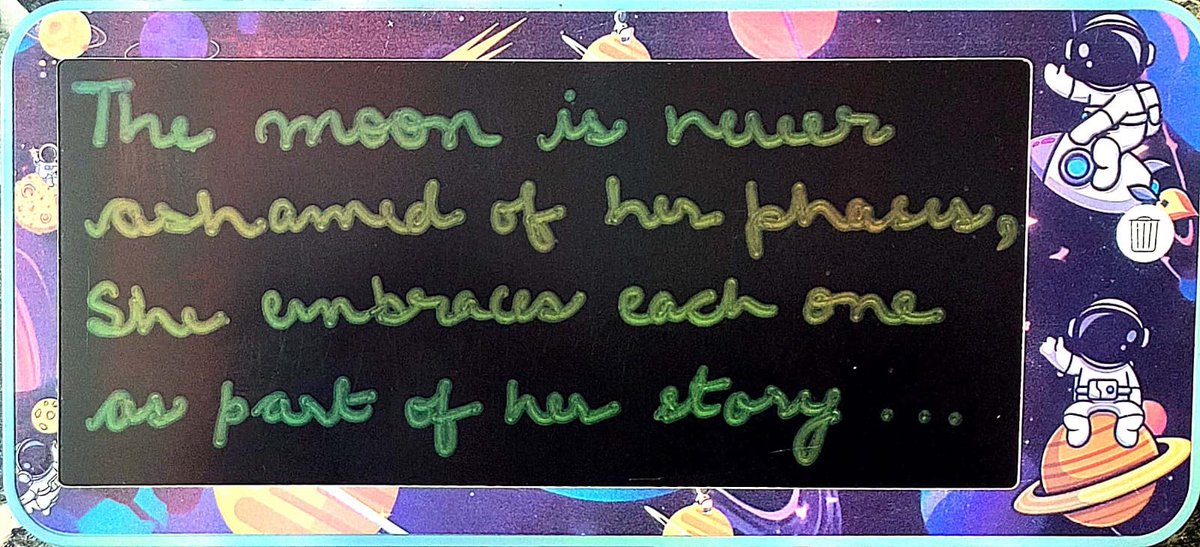 The moon is never
ashamed of her phases,
She embraces each one
as part of her story ...